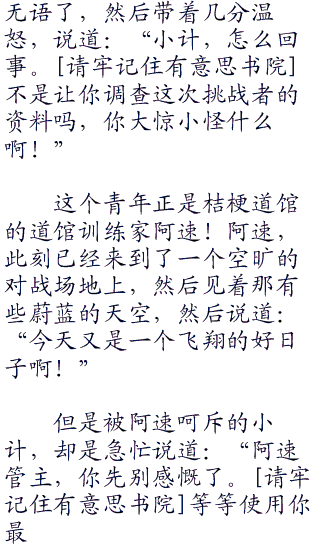 无语了，然后带着几分温
怒，说道：“小计，怎么回
事。[请牢记住有意思书院]
不是让你调查这次挑战者的
资料吗，你大惊小怪什么
啊！”
这个青年正是桔梗道馆
的道馆训练家阿速！阿速，
此刻已经来到了一个空旷的
对战场地上，然后见着那有
些蔚蓝的天空，然后说道：
“今天又是一个飞翔的好日
子啊！”
但是被阿速呵斥的小
计，却是急忙说道：“阿速
管主，你先别感慨了。[请牢
记住有意思书院]等等使用你
最